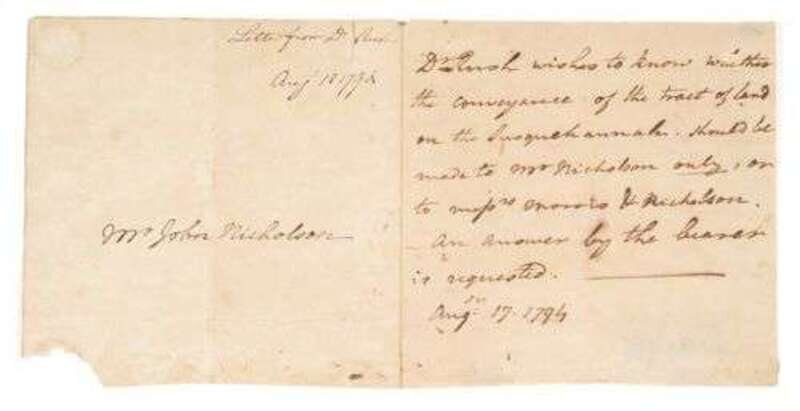 Letter from Dr Rush
Augt 18 1794
Mr John Nicholson
Dr Rush wishes to know whether
the conveyance of the tract of land
on the Susquehannah. should be
made to Mr Nicholson only, or
to messrs Morris & Nicholson.
An answer by the bearer
is requested.
Augst 17. 1794